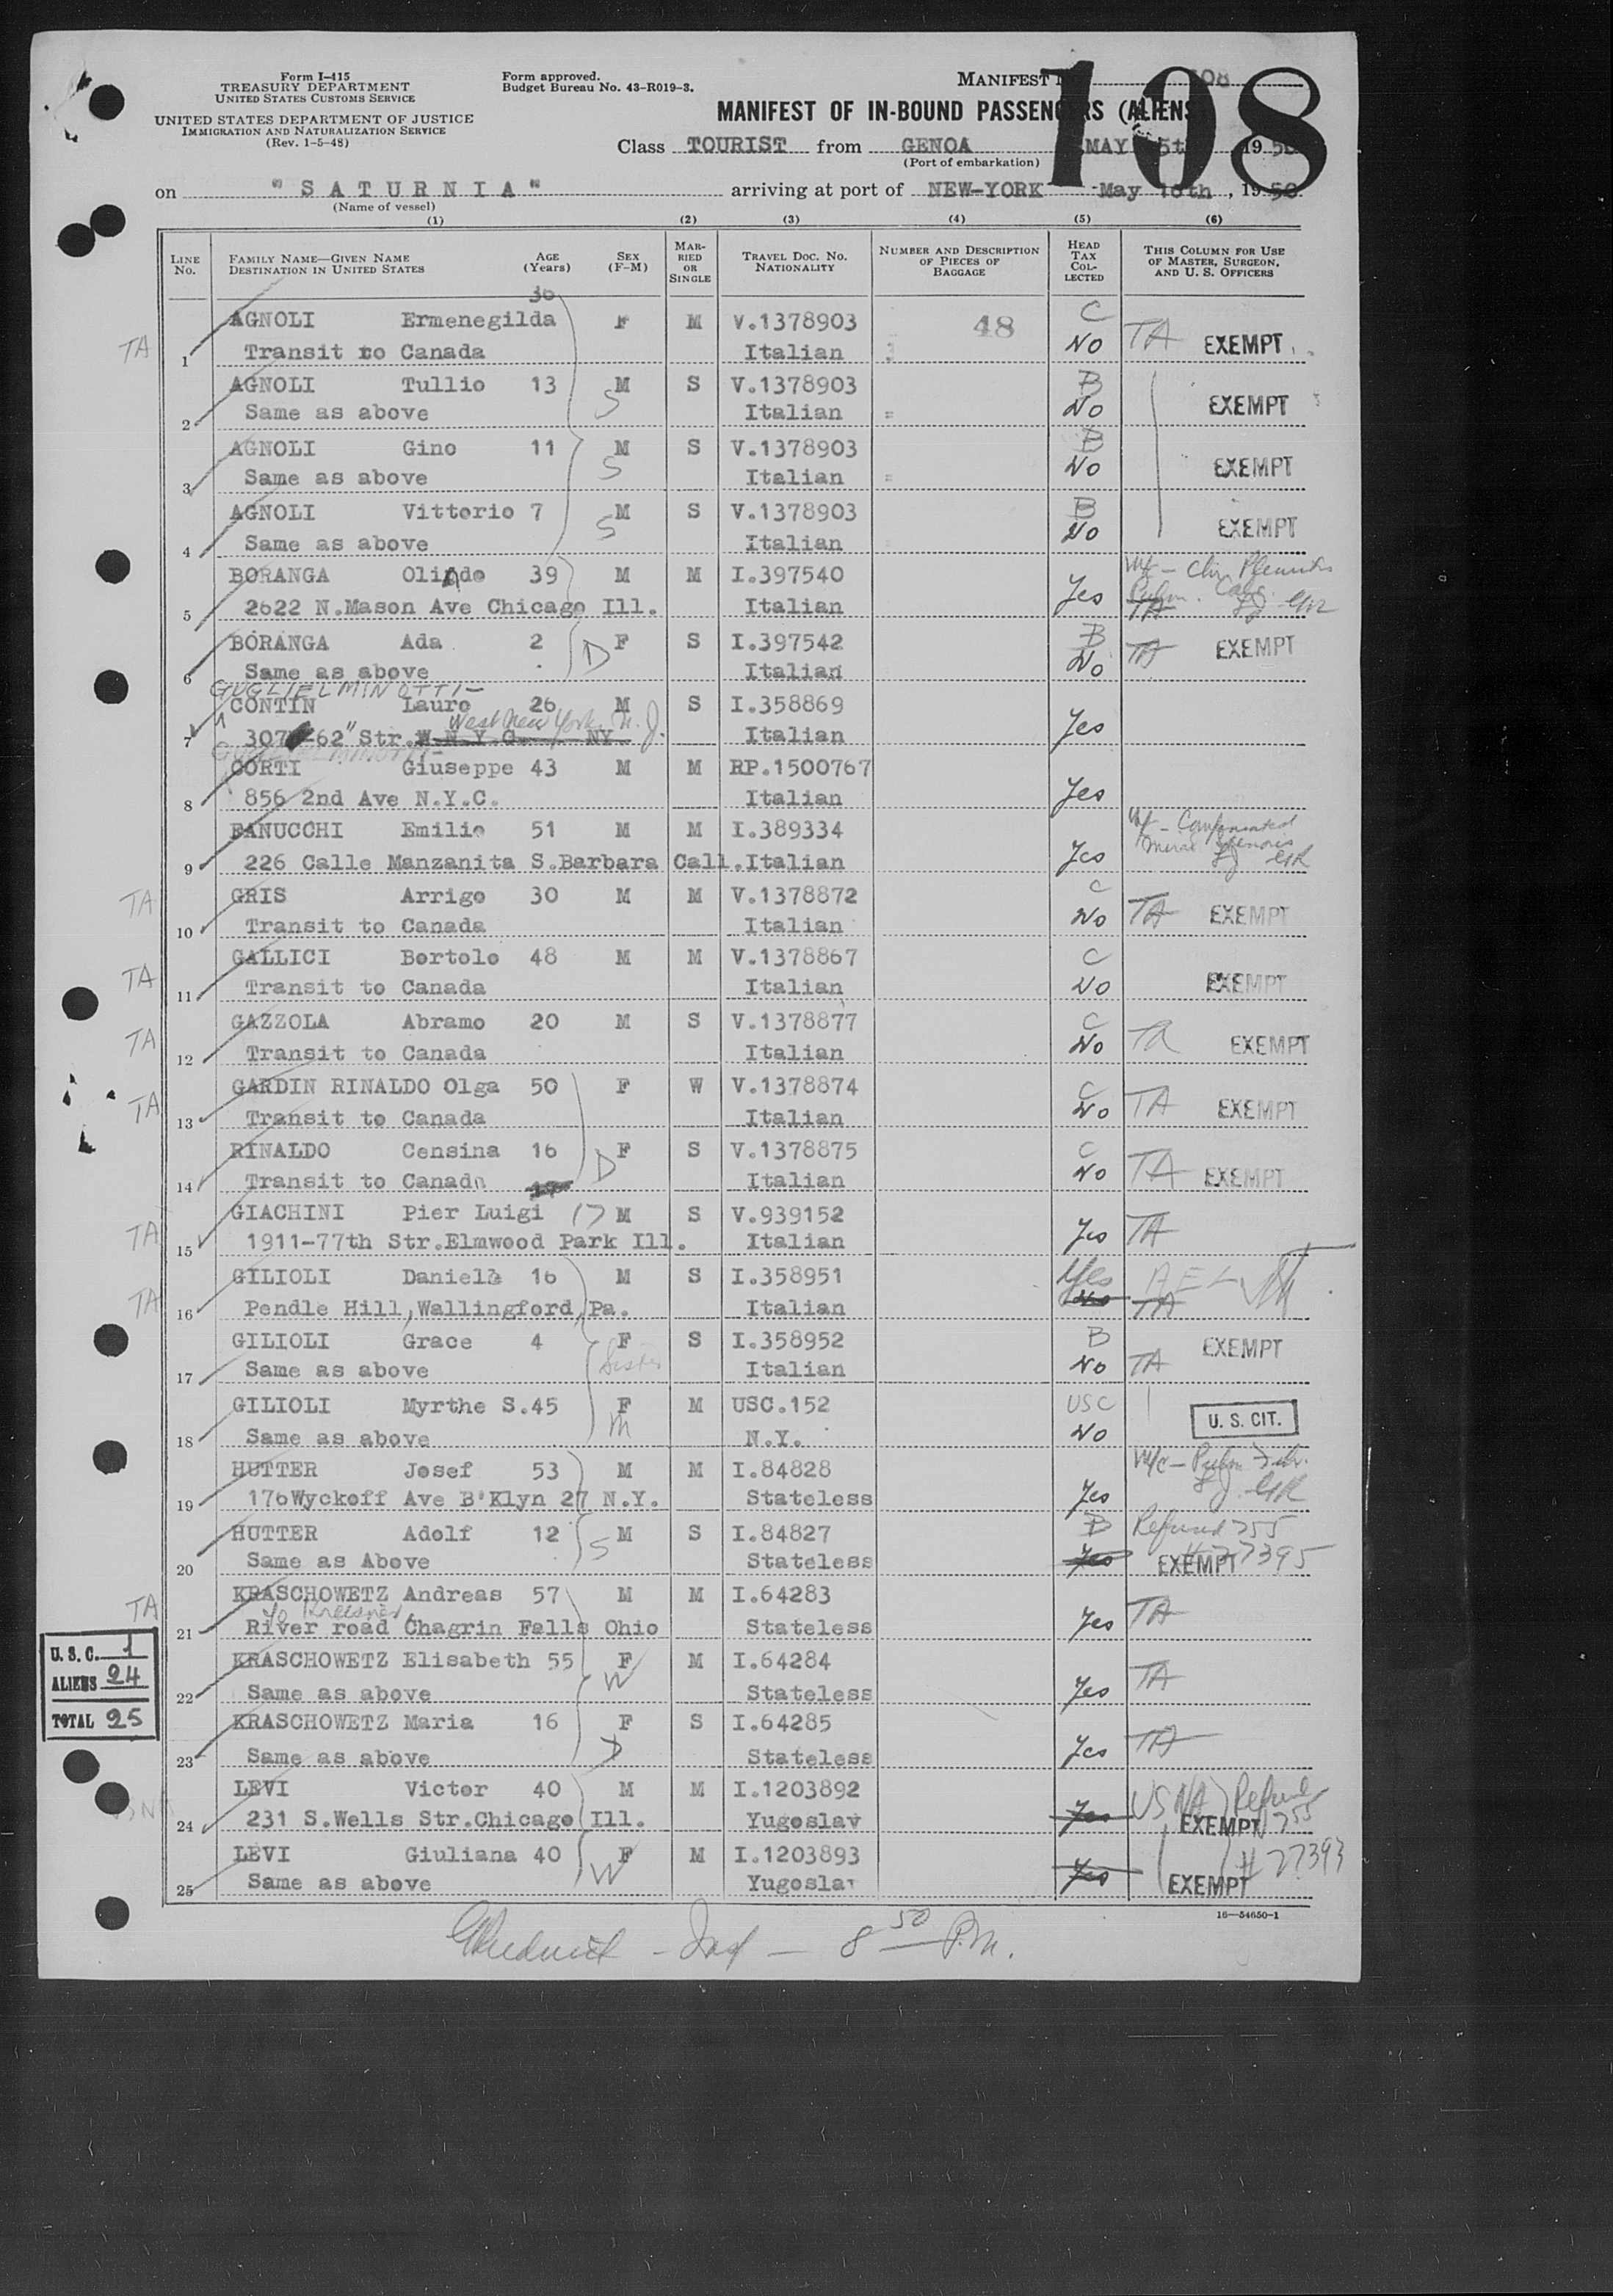 Form I-415
TREASURY DEPARTMENT
UNITED STATES CUSTOMS SERVICE
UNITED STATES DEPARTMENT OF JUSTICE
IMMIGRATION AND NATURALIZATION SERVICE
(Rev. 1-5-48)
Form approved.
Budget Bureau No. 43-R019-3.
MANIFEST
108
MANIFEST OF IN-BOUND PASSENGERS (ALIENS
Class TOURIST from GENOA MAY 5th 1950
(Port of embarkation)
on "SATURNIA" arriving at port of NEW-YORK May 18th, 1950
(Name of vessel)
(1) (2) (3) (4) (5) (6)
LINE No. FAMILY NAME—GIVEN NAME DESTINATION IN UNITED STATES AGE (Years) SEX (F-M) MARRIED OR SINGLE TRAVEL DOC. NO. NATIONALITY NUMBER AND DESCRIPTION OF PIECES OF BAGGAGE HEAD TAX COLLECTED THIS COLUMN FOR USE OF MASTER, SURGEON, AND U. S. OFFICERS
36
AGNOLI Ermenegilda F M V.1378903 48 C
TA 1 Transit to Canada Italian No TA EXEMPT
AGNOLI Tullio 13 M S V.1378903 B
2 Same as above S Italian No EXEMPT
AGNOLI Gino 11 M S V.1378903 B
3 Same as above S Italian No EXEMPT
AGNOLI Vittorio 7 M S V.1378903 B
4 Same as above S Italian No EXEMPT
BORANGA Olindo 39 M M I.397540
5 2622 N.Mason Ave Chicago Ill. Italian Yes TA
BORANGA Ada 2 D F S I.397542 B TA EXEMPT
6 Same as above Italian No
GUGLIELMINOTTI-
CONTIN Lauro 26 M S I.358869
West New York, N.J.
7 307 62" Str. W.N.Y.C. NY Italian Yes
CORTI Giuseppe 43 M M RP.1500767
8 856 2nd Ave N.Y.C. Italian Yes
FANUCCHI Emilio 51 M M I.389334
9 226 Calle Manzanita S.Barbara Call. Italian Yes
TA GRIS Arrigo 30 M M V.1378872 C
10 Transit to Canada Italian No TA EXEMPT
GALLICI Bortolo 48 M M V.1378867 C
TA 11 Transit to Canada Italian No EXEMPT
GAZZOLA Abramo 20 M S V.1378877 C
TA 12 Transit to Canada Italian No TA EXEMPT
GARDIN RINALDO Olga 50 F W V.1378874 C
TA 13 Transit to Canada Italian No TA EXEMPT
RINALDO Censina 16 D F S V.1378875 C
14 Transit to Canada Italian No TA EXEMPT
GIACHINI Pier Luigi 17 M S V.939152
TA 15 1911-77th Str.Elmwood Park Ill. Italian Yes TA
GILIOLI Daniele 16 M S I.358951 Yes
TA 16 Pendle Hill, Wallingford, Pa. Italian No TA
GILIOLI Grace 4 F S I.358952 B EXEMPT
17 Same as above Sister Italian No TA
GILIOLI Myrthe S. 45 F M USC.152 USC U. S. CIT.
18 Same as above M N.Y. No
HUTTER Josef 53 M M I.84828
19 176Wyckoff Ave B'Klyn 27 N.Y. Stateless Yes
HUTTER Adolf 12 S M S I.84827 B Refund 755
20 Same as Above Stateless Yes EXEMPT # 27395
KRASCHOWETZ Andreas 57 M M I.64283
TA 21 River road Chagrin Falls Ohio Stateless Yes TA
KRASCHOWETZ Elisabeth 55 F M I.64284
22 Same as above W Stateless Yes TA
KRASCHOWETZ Maria 16 F S I.64285
23 Same as above D Stateless Yes TA
LEVI Victor 40 M M I.1203892 USNA Refund
24 231 S.Wells Str.Chicago Ill. Yugoslav Yes EXEMPT 755
LEVI Giuliana 40 F M I.1203893 # 27393
25 Same as above W Yugoslav Yes EXEMPT
U. S. C. 1
ALIENS 24
TOTAL 25
16—54650-1
8 50 P.M.